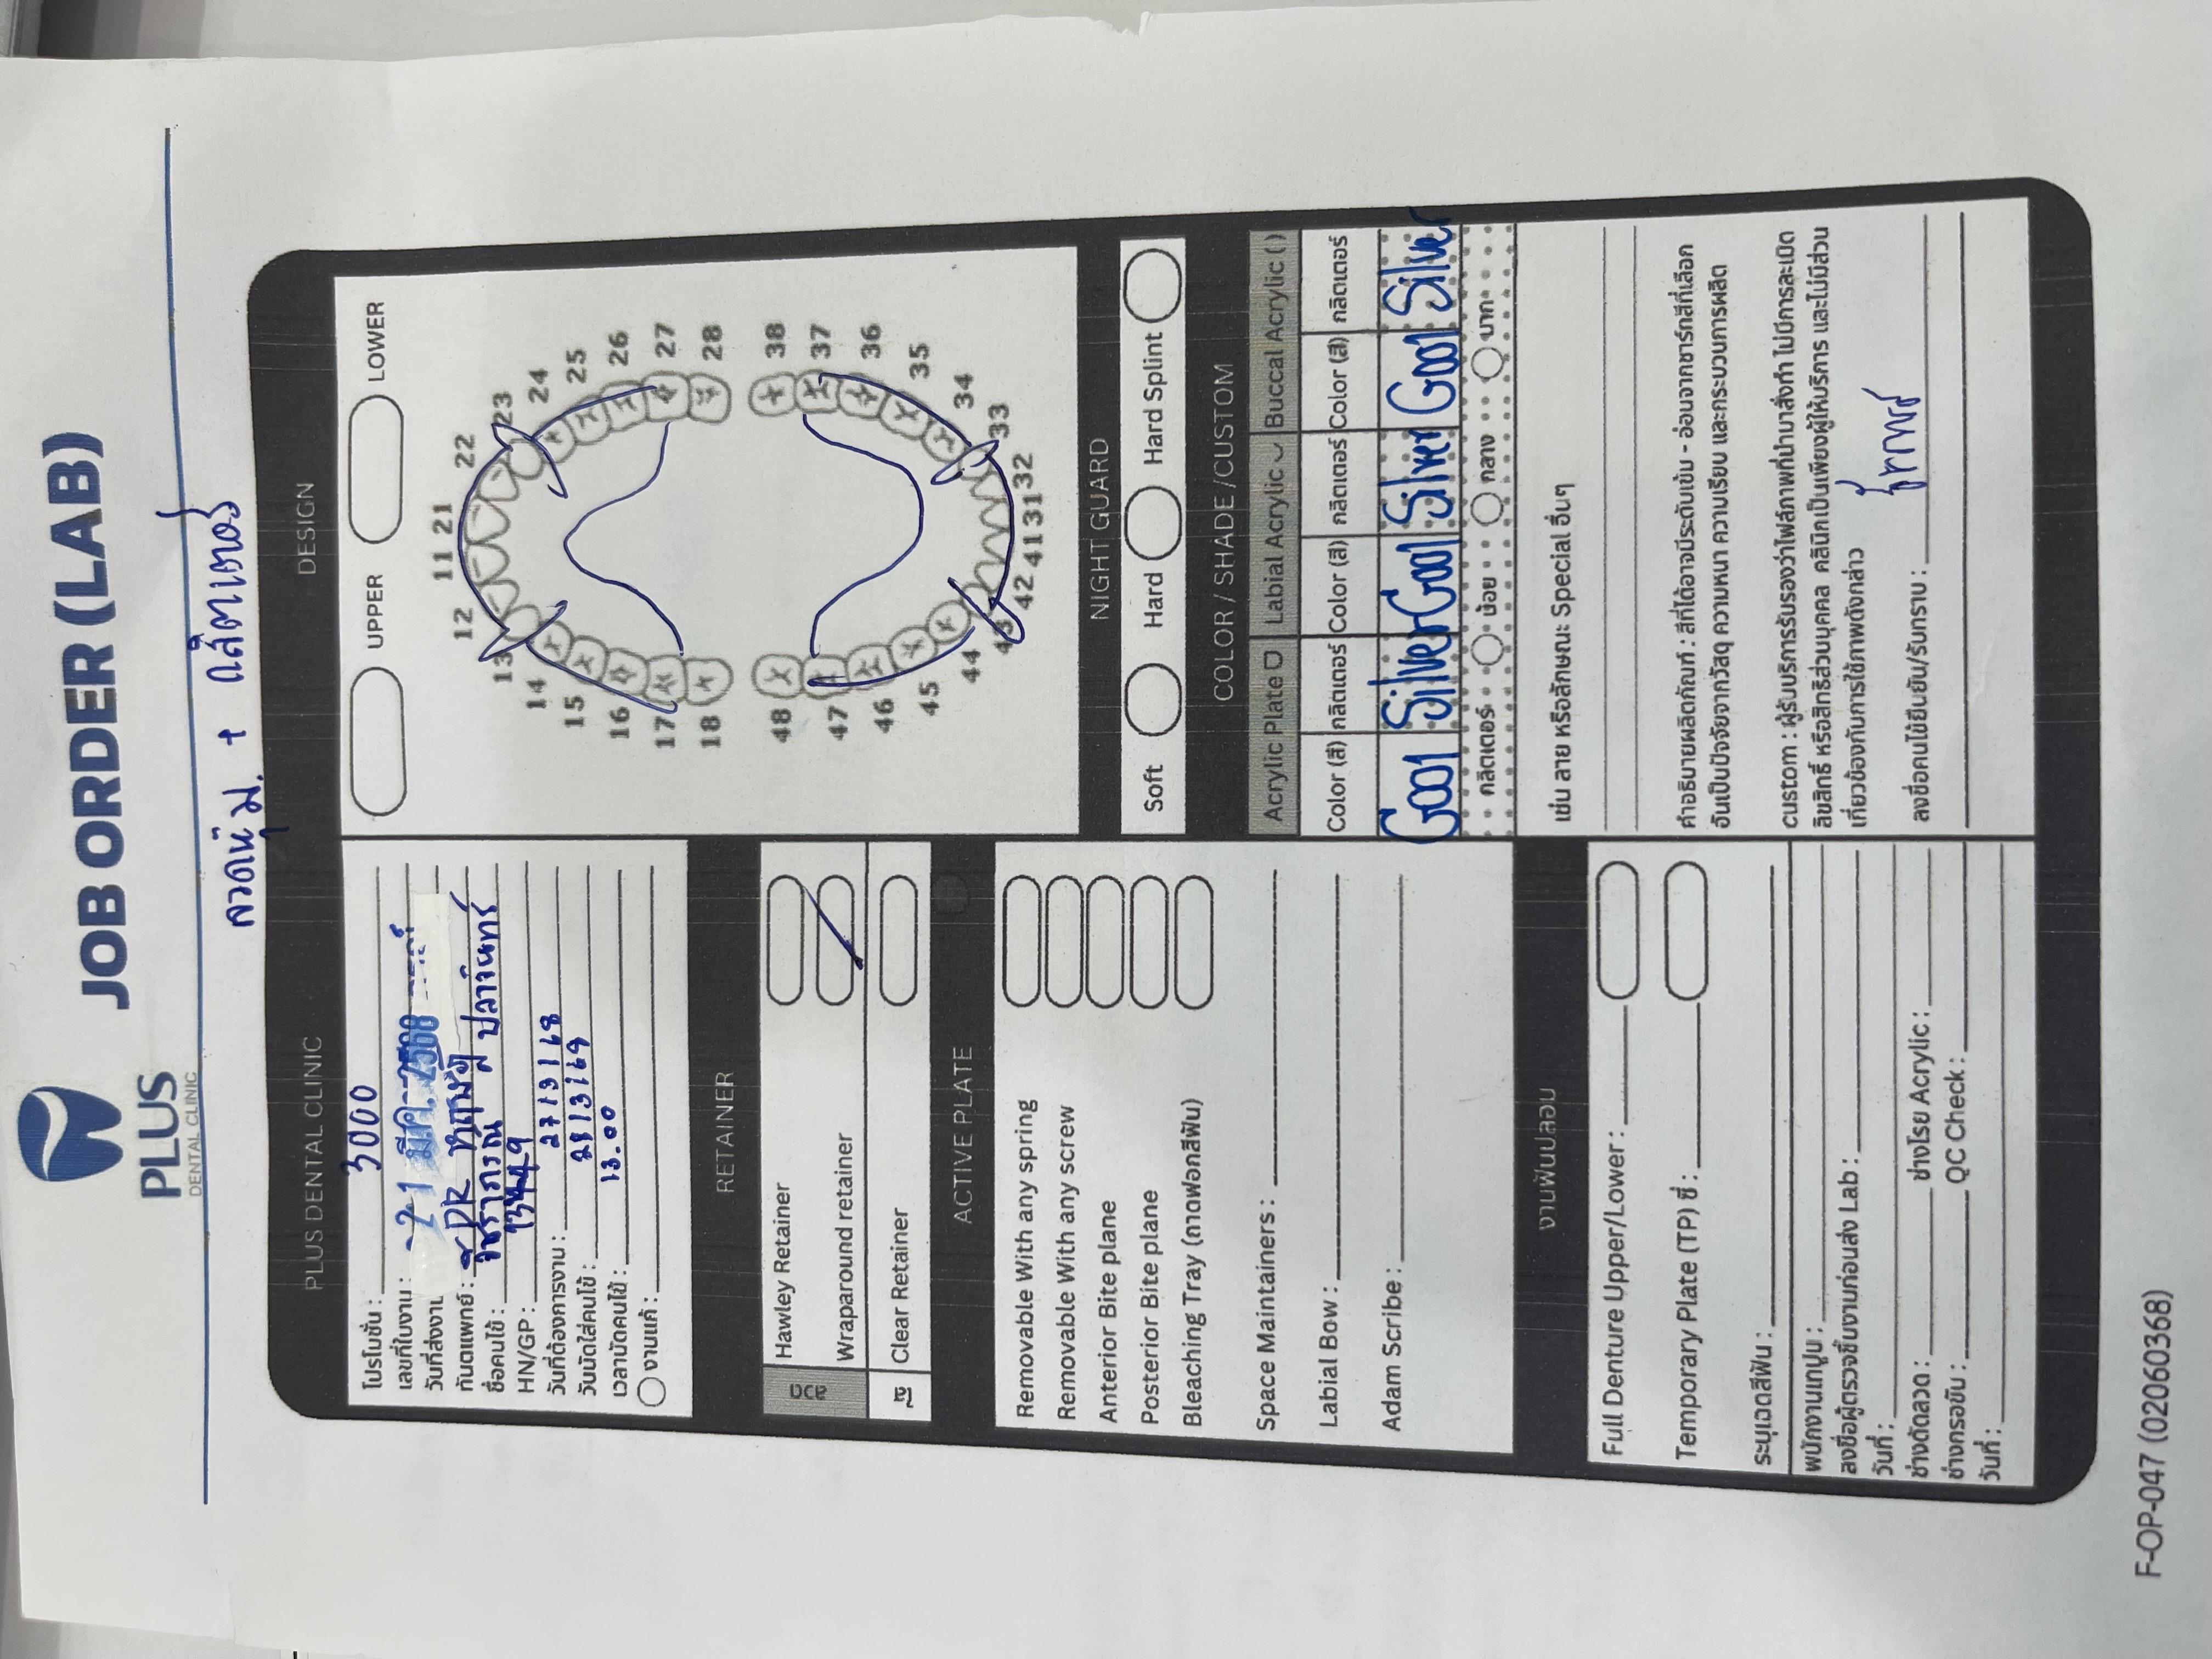 PLUS
DENTAL CLINIC
JOB ORDER (LAB)
ลวดหุ้ม. + กลิตเตอร์
PLUS DENTAL CLINIC
โปรโมชั่น : 3000
เลขที่ใบงาน :
วันที่ส่งงาน 21 มี.ค. 2568
ทันตแพทย์ : DR
ชื่อคนไข้ : ปลาจันทร์
HN/GP : 13449
วันที่ต้องการงาน : 27/3/68
วันนัดใส่คนไข้ : 28/3/68
เวลานัดคนไข้ : 13.00
งานแก้ :
RETAINER
ลวด
Hawley Retainer
Wraparound retainer
ใส
Clear Retainer
ACTIVE PLATE
Removable With any spring
Removable With any screw
Anterior Bite plane
Posterior Bite plane
Bleaching Tray (ถาดฟอกสีฟัน)
Space Maintainers :
Labial Bow :
Adam Scribe :
งานฟันปลอม
Full Denture Upper/Lower :
Temporary Plate (TP) ซี่ :
ระบุเฉดสีฟัน :
พนักงานเทปูน :
ลงชื่อผู้ตรวจชิ้นงานก่อนส่ง Lab :
วันที่ :
ช่างดัดลวด : ช่างโรย Acrylic :
ช่างกรอขัด : QC Check :
วันที่ :
DESIGN
UPPER LOWER
11 21
12 22
13 23
14 24
15 25
16 26
17 27
18 28
48 38
47 37
46 36
45 35
44 34
43 33
42 41 31 32
NIGHT GUARD
Soft Hard Hard Splint
COLOR / SHADE /CUSTOM
Acrylic Plate Labial Acrylic Buccal Acrylic ( )
Color (สี) กลิตเตอร์ Color (สี) กลิตเตอร์ Color (สี) กลิตเตอร์
G001 Silver G001 Silver G001 Silver
กลิตเตอร์ น้อย กลาง มาก
เช่น ลาย หรือลักษณะ Special อื่นๆ
คำอธิบายผลิตภัณฑ์ : สีที่ได้อาจมีระดับเข้ม - อ่อนจากชาร์ทสีที่เลือก
อันเป็นปัจจัยจากวัสดุ ความหนา ความเรียบ และกระบวนการผลิต
custom : ผู้รับบริการรับรองว่าไฟล์ภาพที่นำมาสั่งทำ ไม่มีการละเมิด
ลิขสิทธิ์ หรือสิทธิส่วนบุคคล คลินิกเป็นเพียงผู้ให้บริการ และไม่มีส่วน
เกี่ยวข้องกับการใช้ภาพดังกล่าว
ลงชื่อคนไข้ยืนยัน/รับทราบ :
F-OP-047 (02060368)